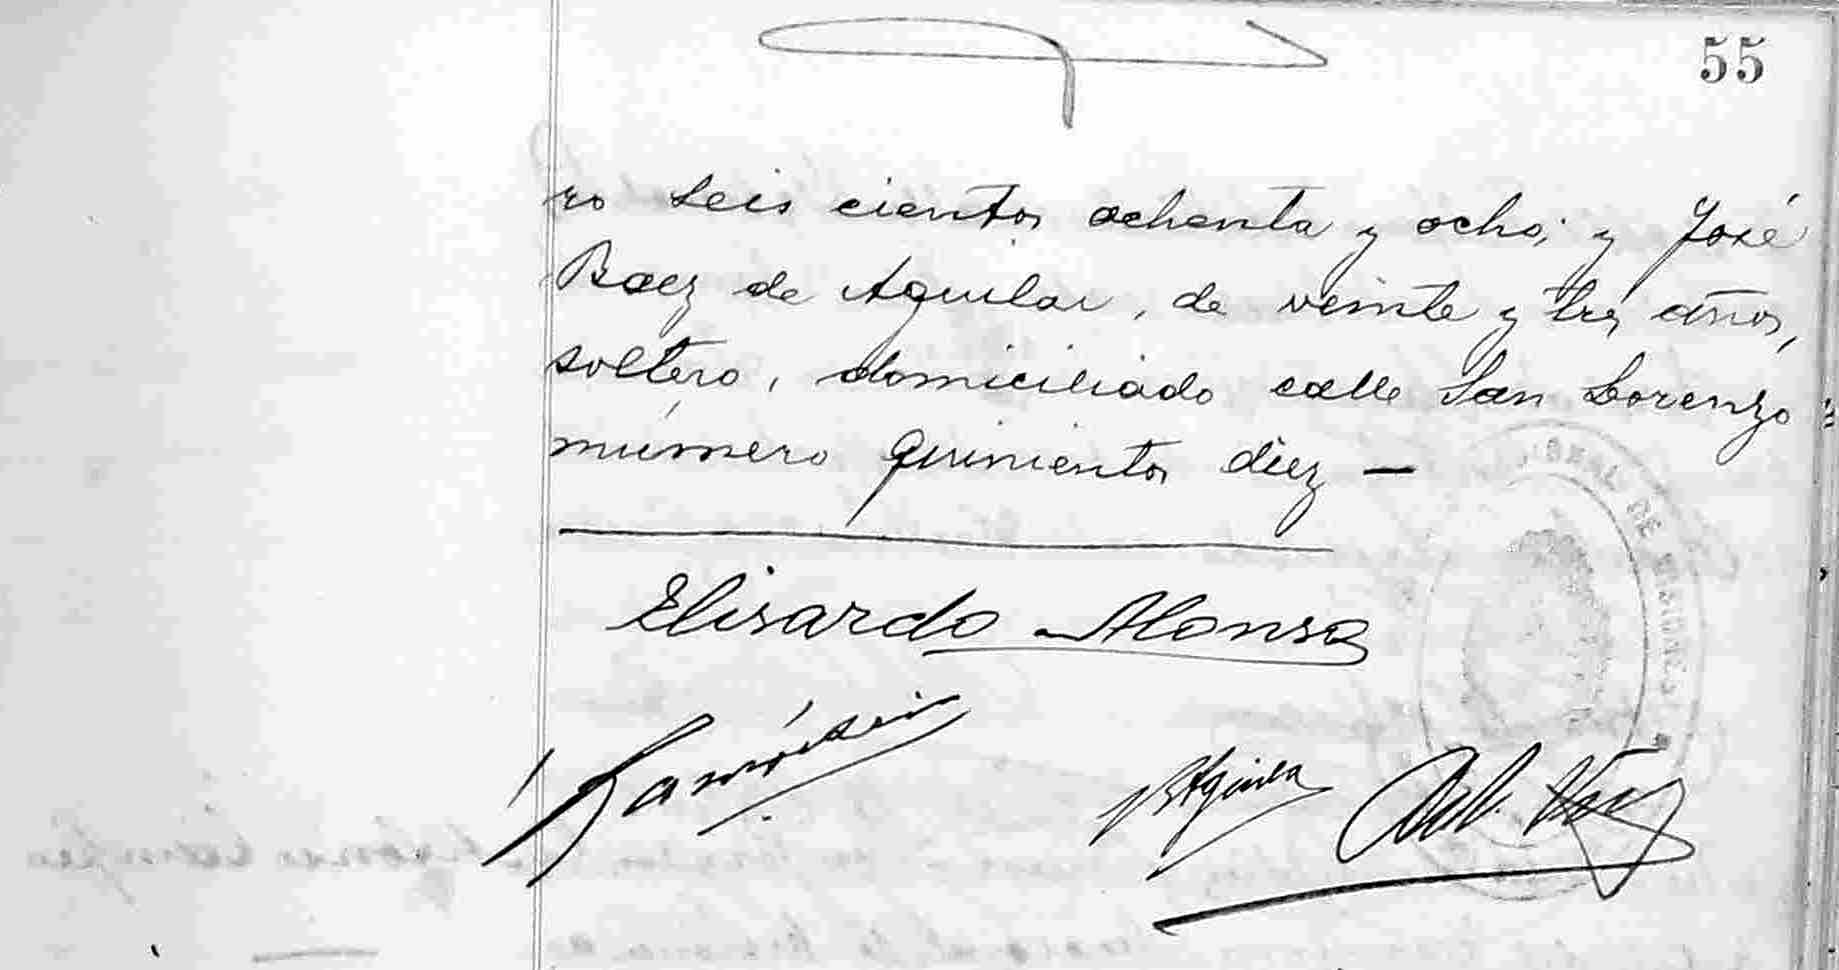 55
ro seis cientos ochenta y ocho; y José
Baez de Aguilar, de veinte y tres años,
soltero, domiciliado calle San Lorenzo
número quinientos diez —
Elisardo Alonso
BAguilar
DE MISIONES